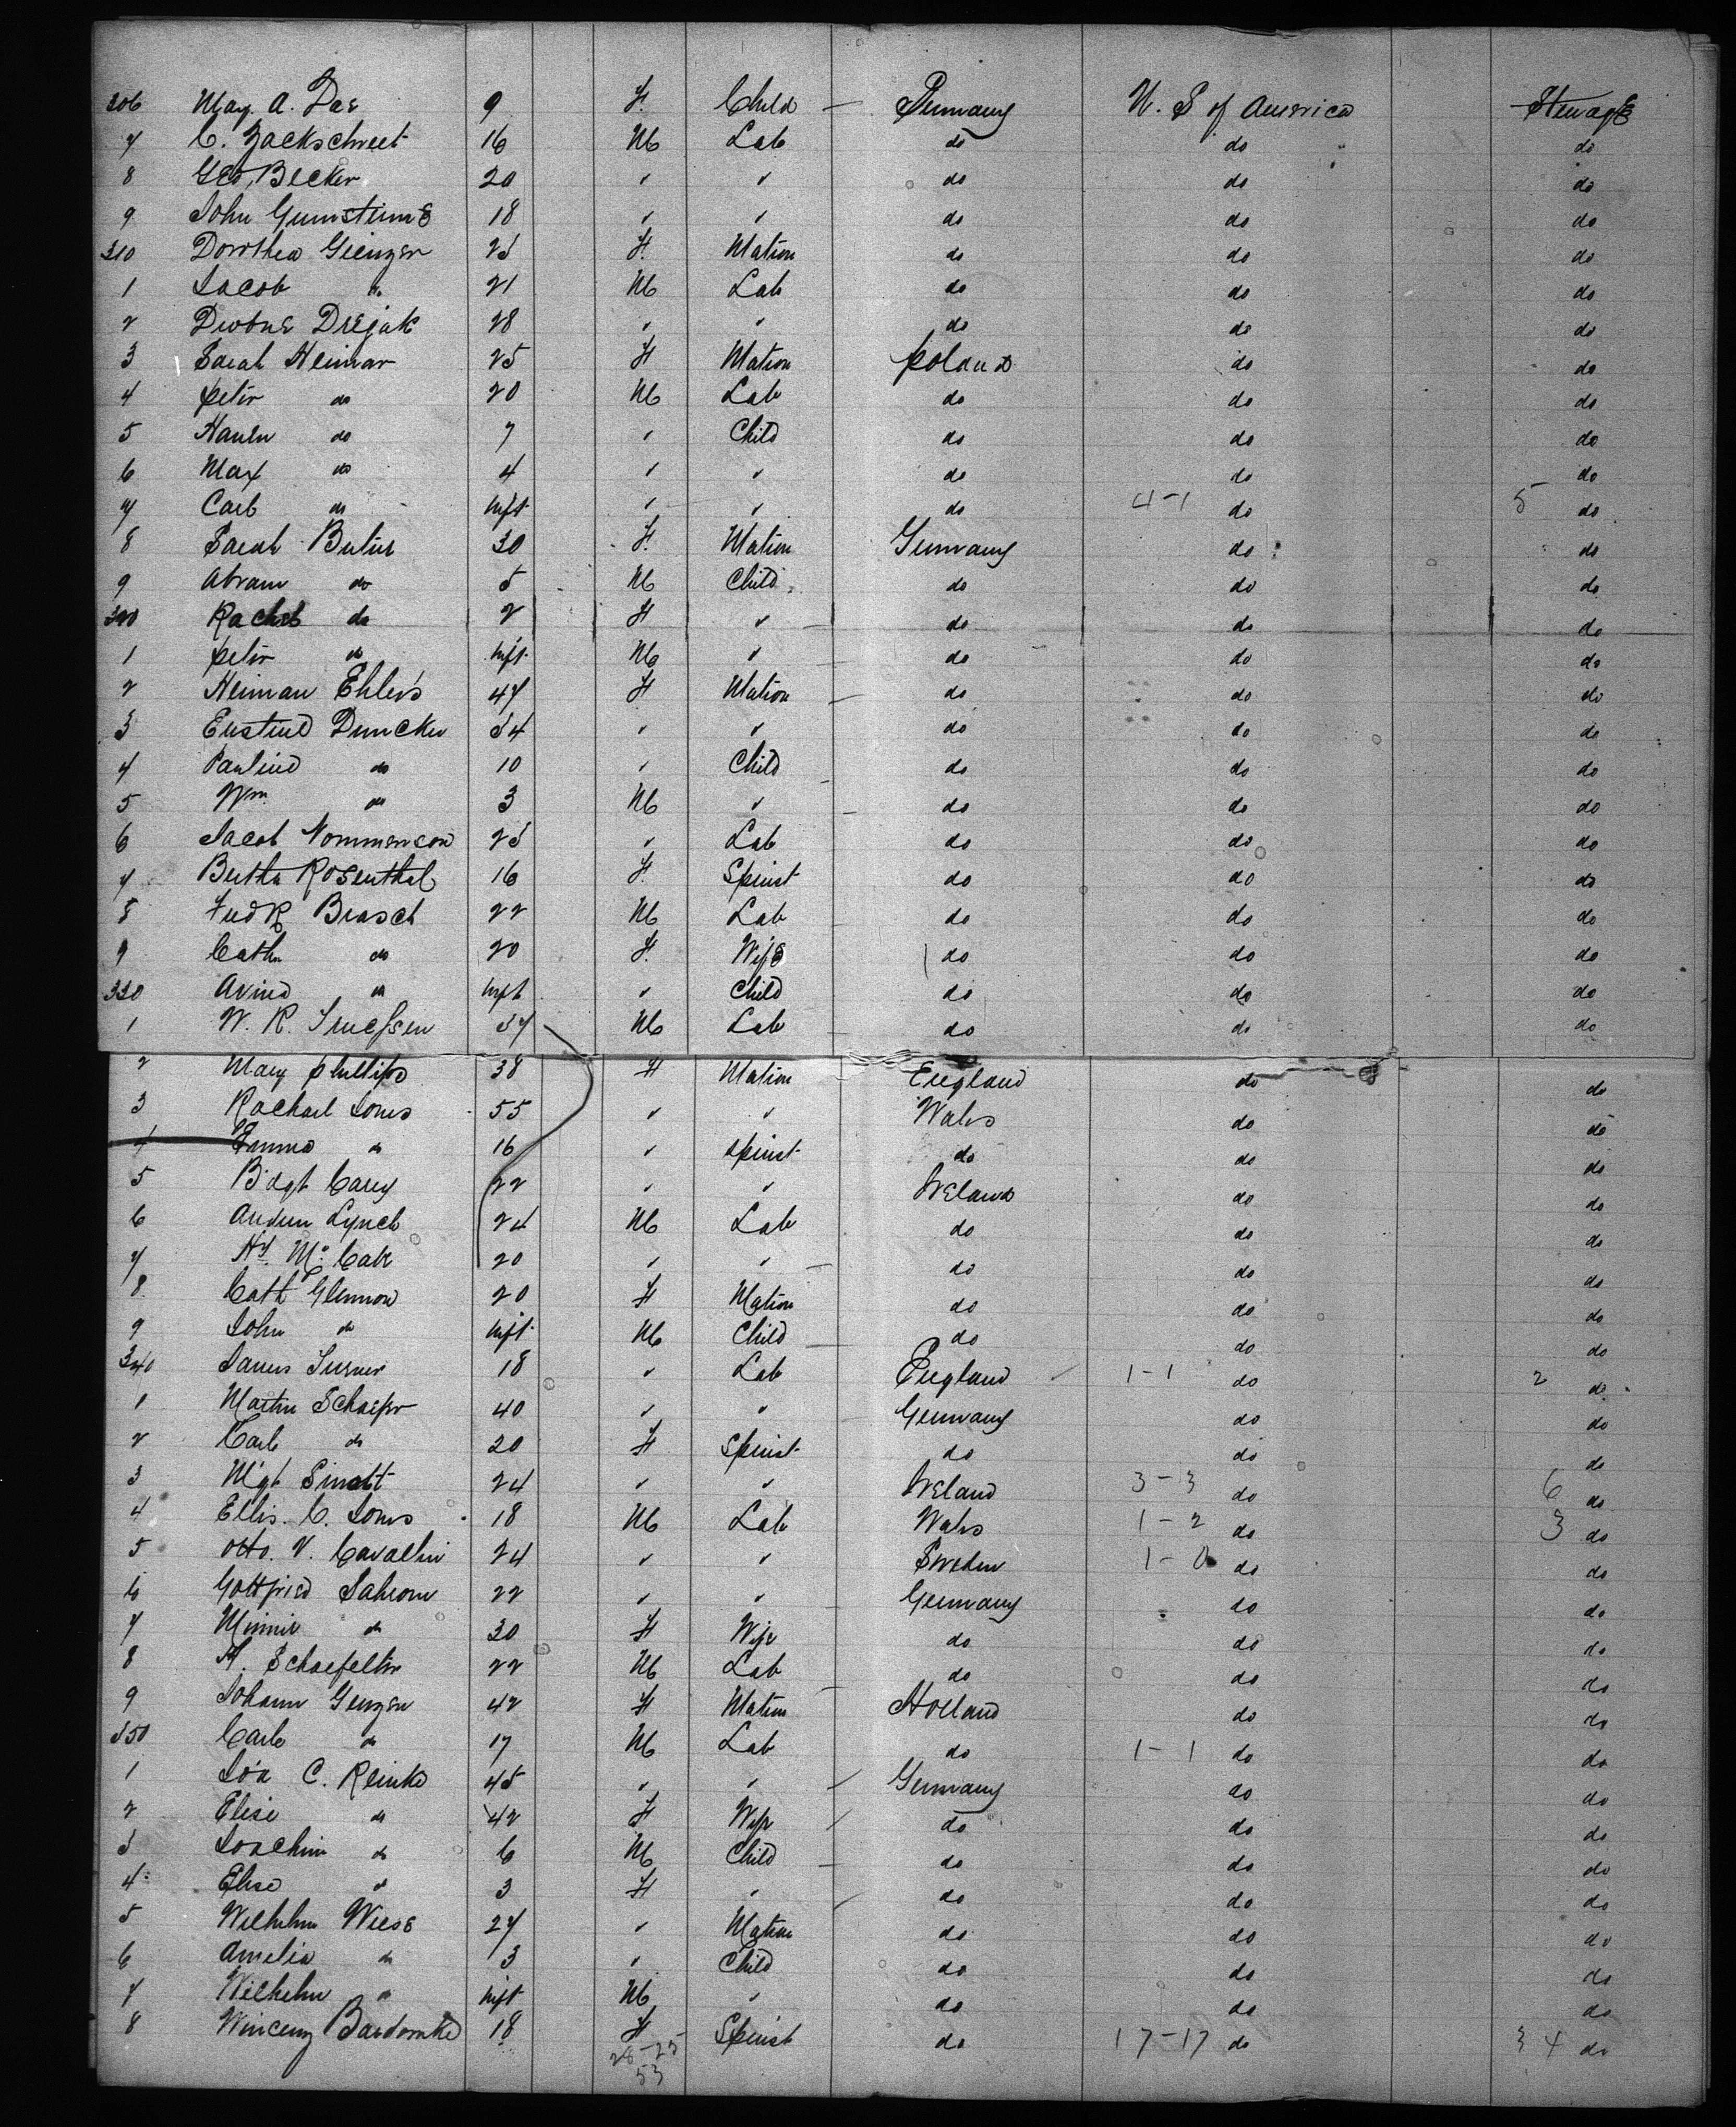 306 May A. Das 9 F. Child — Germany U. S of America Steerage
7 C. Zackschweet 16 M Lab do do do
8 Geo. Becker 20 " " do do do
9 John 18 " " do do do
310 Dorothea Gienger 25 F. Matron do do do
1 Jacob " 21 M Lab do do do
2 Drejak 28 " " do do do
3 Sarah Heimar 25 F Matron Poland do do
4 Peter do 20 M Lab do do do
5 do 7 " Child do do do
6 Max do 4 " " do do do
7 Carl do Inft " " do 4-1 do 5 do
8 Sarah Butur 30 F. Matron Germany do do
9 Abram do 5 M Child do do do
320 Rachel do 2 F " do do do
1 Peter do Inft. M " do do do
2 Herman Ehlers 47 F Matron — do do do
3 Ernstine Duncker 34 " " do do do
4 Pauline do 10 " Child do do do
5 Wm do 3 M " — do do do
6 Jacob Nommenson 25 " Lab do do do
7 Bertha Rosenthal 16 F. Spinst do do do
8 Fredk Brasch 22 M Lab do do do
9 Cath do 20 F. Wife do do do
330 do Inft " Child do do do
1 W. R. 37 M Lab do do do
2 Mary Phillips 38 F Matron England do do
3 Rachael Jones 55 " " Wales do do
4 Emma do 16 " Spinst do do do
5 Bdgt Carey 22 " " Ireland do do
6 Andrew Lynch 24 M Lab do do do
7 Hy. McCabe 20 " " — do do do
8 Cath Glennon 20 F Matron do do do
9 John do Inft. M Child — do do do
340 James Turner 18 " Lab England 1-1 do 2 do
1 Martin Schaefer 40 " " Germany do do
2 Carl do 20 F Spinst do do do
3 Mgt Sinott 24 " " Ireland 3-3 do 6 do
4 Ellis. C. Jones 18 M Lab Wales 1-2 do 3 do
5 Otto. V. Cavallin 24 " " Sweden 1-0 do do
6 Gottfried Salrom 22 " " Germany do do
7 Minnie do 30 F Wife do do do
8 H. Schaefeltr 22 M Lab do do do
9 Johann Genzen 42 F Matron Holland do do
350 Carl do 17 M Lab do 1-1 do do
1 Joa C. Reinke 45 " " Germany do do
2 Elise do 42 F Wife do do do
3 Joachim do 6 M Child do do do
4 Elise do 3 F " do do do
5 Wilhelm Wiese 27 " Matron do do do
6 Amelia do 3 " Child do do do
7 Wilhelm " Inft M " do do do
8 Wincenz 18 F Spinst do 17-17 do 34 do
28-25
53